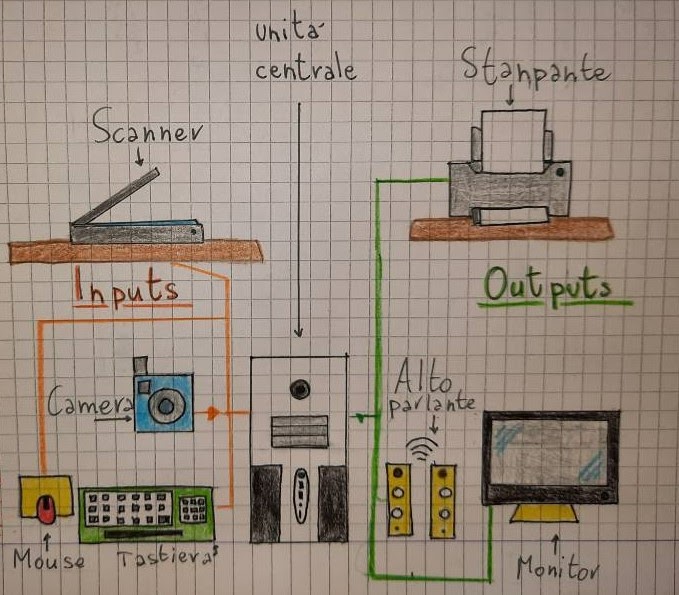 unità
centrale
Stanpante
Scanner
Inputs
Outputs
Camera
Alto
parlante
Mouse
Tastiera
Monitor